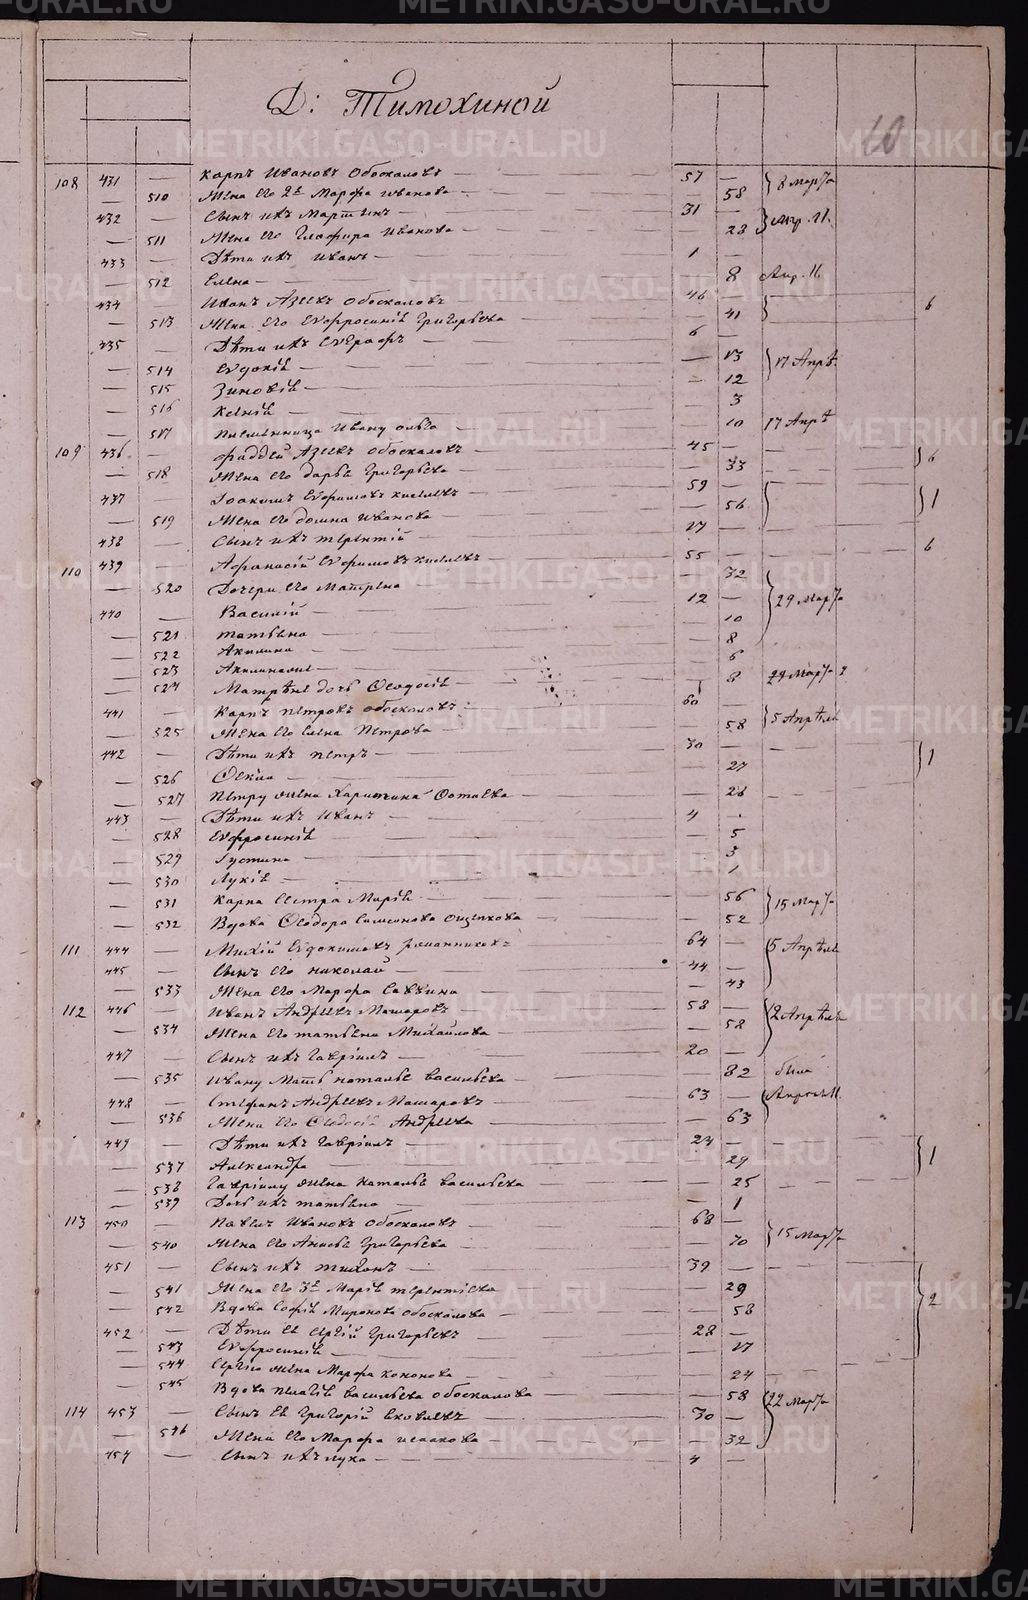 METRIKI.GASO-URAL.RU
Д: Тимохиной
10
108 431 — Карпъ Ивановъ Обоскаловъ — 57 — 8 Марта
— 510 Жена его 2я Марфа Иванова — 58
432 — Сынъ ихъ Мартинъ — 31 —
— 511 Жена его Глафира Иванова — 28 Апр. 11.
433 — Дѣти ихъ Иванъ — 1 —
— 512 Елена — 8 Апр. 11.
434 — Иванъ Азеевъ Обоскаловъ 46 — 6
— 513 Жена его Евфросинія Григорьева — 41
435 — Дѣти ихъ Евграфъ — 6
— 514 Евдокія — 13 17 Апрѣ.
— 515 Зиновія — 12
— 516 Ксенія — 3
— 517 Племянница Ивану Ольга — 10 17 Апрѣ
109 436 — Фаддей Азеевъ Обоскаловъ — 45 — 6
— 518 Жена его Дарья Григорьева — 33
437 — Іоакимъ Ефимовъ Киселевъ — 59 — 1
— 519 Жена его Домна Иванова — 56
438 — Сынъ ихъ Терентій — 17 —
110 439 — Афанасій Ефимовъ Киселевъ — 55 — 6
— 520 Дочери его Матрена 32
440 — Василій — 12 — 29 Марта
— 521 Татьяна — 10
— 522 Акилина — 8
— 523 — 6
— 524 Матрены дочь Ѳеодосія — 8 29 Марта
441 — Карпъ Петровъ Обоскаловъ 60
— 525 Жена его Елена Петрова — 58 5 Апрѣля
442 — Дѣти ихъ Петръ — 30 — 1
— 526 Ѳекла — 27
— 527 Петру жена Харитина — 26
443 — Дѣти ихъ Иванъ — 4
— 528 Евфросинія — 5
— 529 Густина — 3
— 530 Лукія — 1
— 531 Карпа сестра Марія — 56 15 Марта
— 532 Вдова Ѳеодора Симеонова — 52
111 444 — Евдокимовъ Романниковъ 64 — 5 Апрѣля
445 — Сынъ его Николай — 44 —
— 533 Жена его Марфа Саввина — 43
112 446 — Иванъ Андреевъ Машаровъ — 58 — 12 Апрѣля
— 534 Жена его Татьяна Михайлова — 58
447 — Сынъ ихъ Гавріилъ — 20 —
— 535 Ивану мать Наталья Васильева — 82 была
448 — Стефанъ Андреевъ Машаровъ — 63 — Апрѣля 11.
— 536 Жена его Ѳеодосія Андреева — 63
449 — Дѣти ихъ Гавріилъ — 24 — 1
— 537 Александра — 29
— 538 Гавріилу жена Наталья Васильева — 25
— 539 Дочь ихъ Татьяна — 1
113 450 — Павелъ Ивановъ Обоскаловъ — 68 —
— 540 Жена его Анисья Григорьева — 70 15 Марта
451 — Сынъ ихъ Тихонъ — 39 — 2
— 541 Жена его 3я Марія Терентіева 29
— 542 Вдова Софія Миронова Обоскалова — 58
452 — Дѣти ея Сергій Григорьевъ — 28 —
— 543 Евфросинія — 17
— 544 Сергію жена Марфа Кононова — 24
— 545 Вдова Пелагія Васильева Обоскалова — 58 22 Марта
114 453 — Сынъ ея Григорій Яковлевъ — 30 —
— 546 Жена его Марфа Исаакова — 32
454 — Сынъ ихъ Лука — 4 —